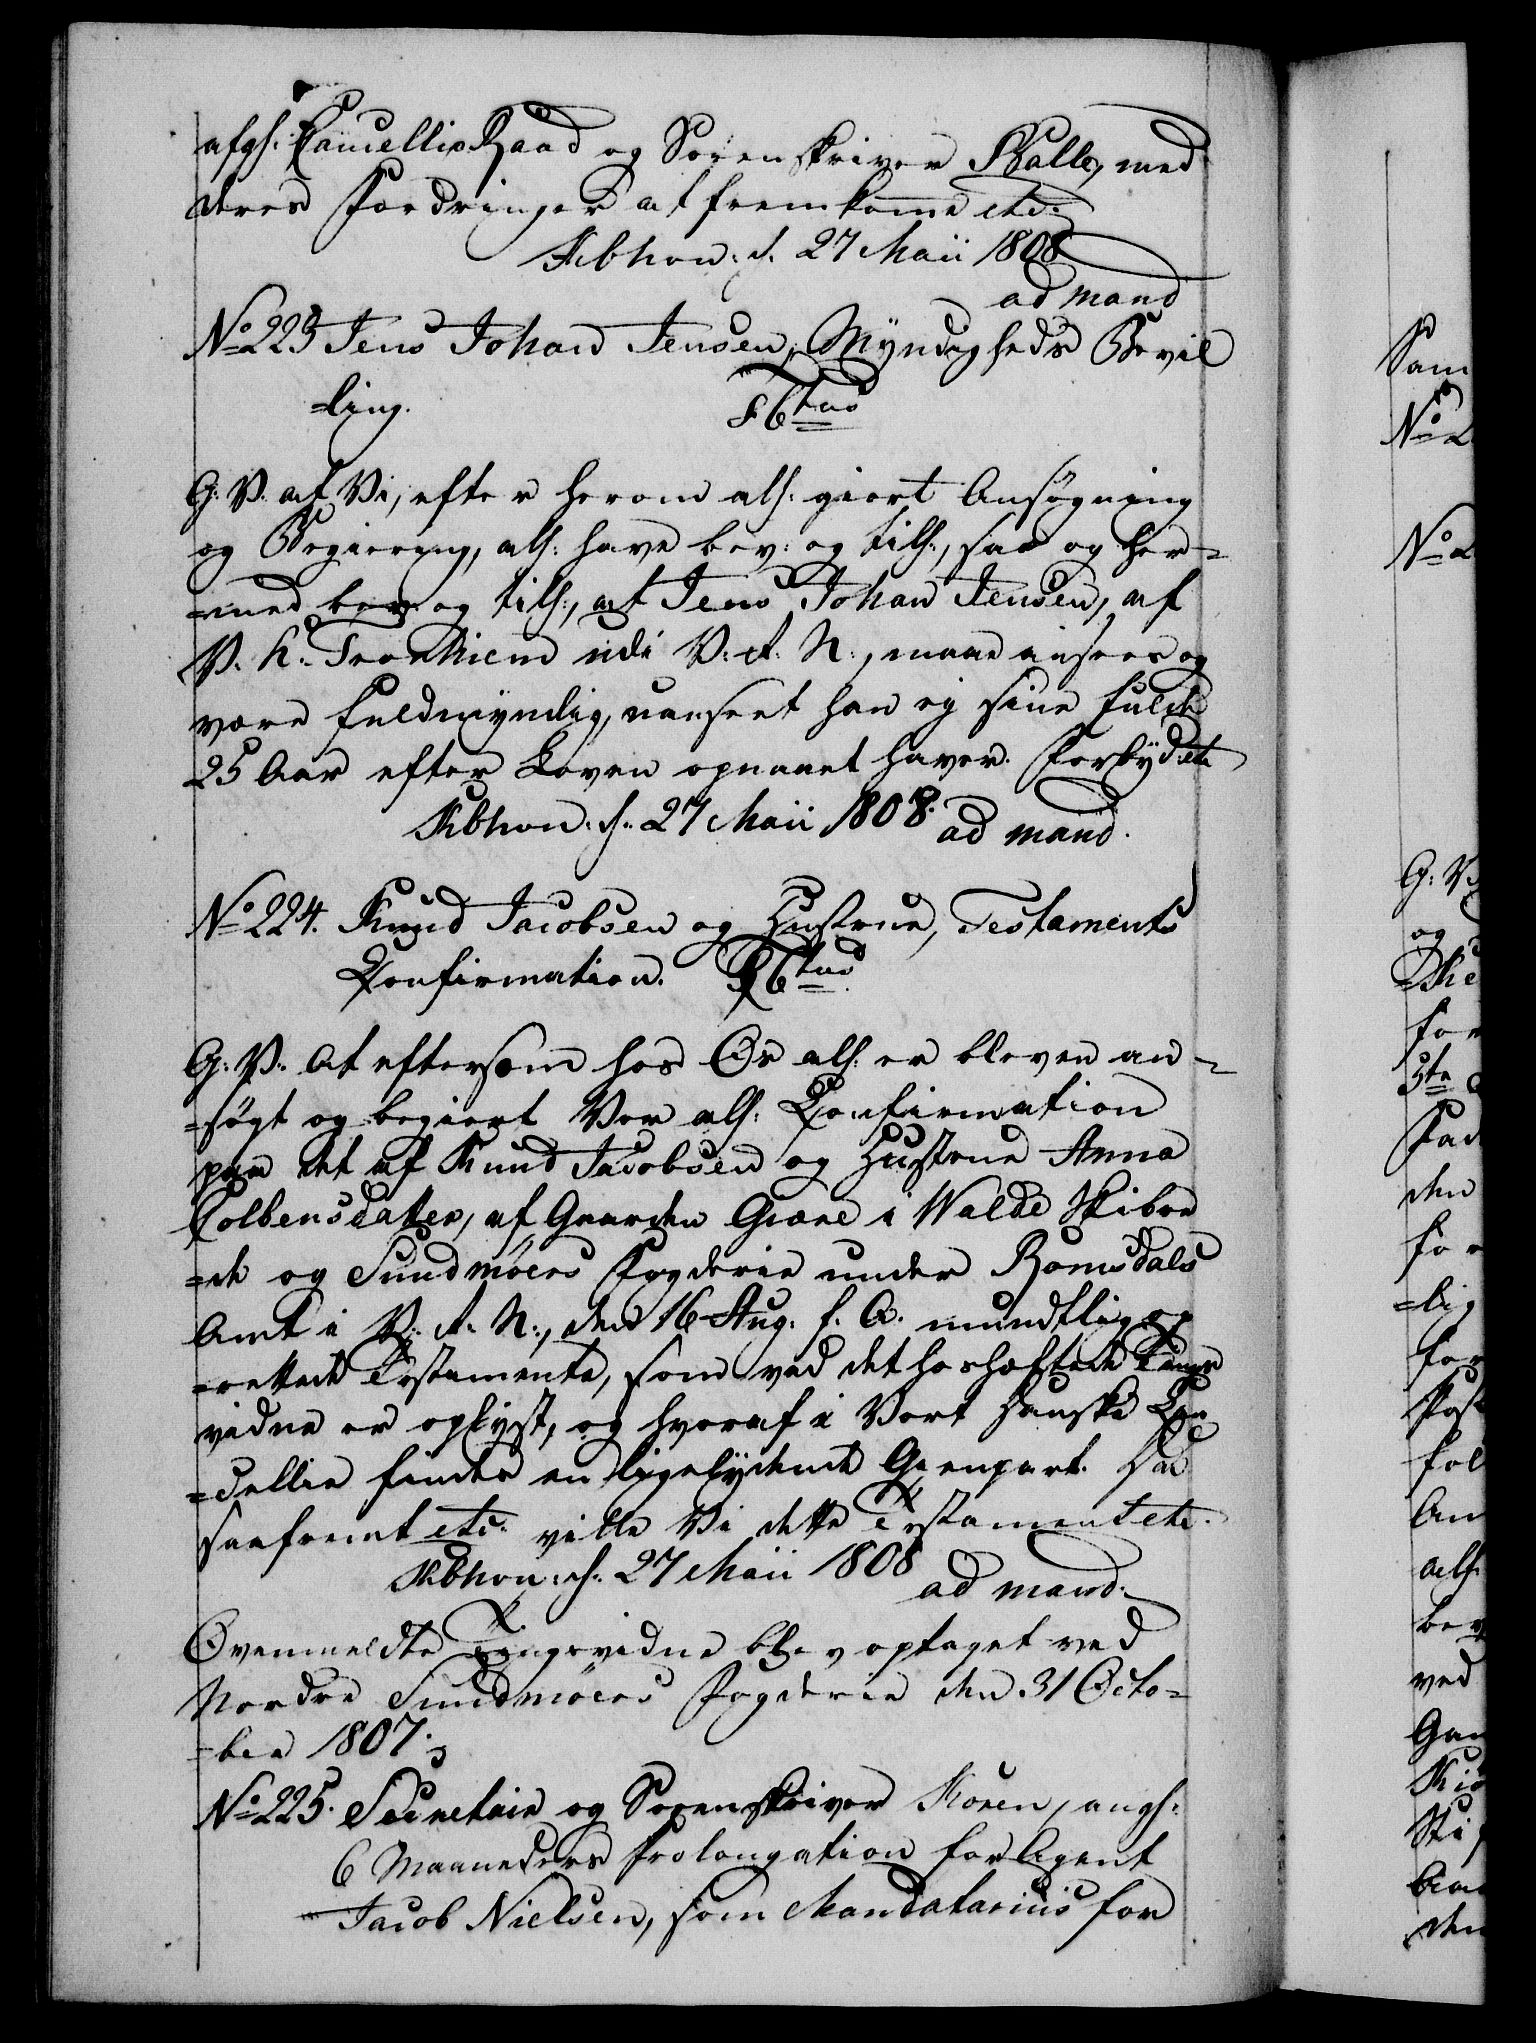 afgl: CancellieRaad og Sorenskriver Balle, med
deres Fordringer at fremkomme etc.
Kbhvn. d. 27 Maii 1808
ad mand
No 223 Jens Johan Jensen, Myndigheds Bevil
=ling. F 6tus
G. V. at Vi, efter herom alh: giort Ansøgning
og Begiering, alh: have bev: og tilh:, saa og her=
=med bev: og tilh:, at Jens Johan Jensen, af
V. K. Tronhiem udi V. R. N:, maae ansees og
være fuldmyndig, uanseet han ej sine fulde
25 Aar efter Loven opnaaet haver. Forbyd: etc
Kbhvn: d. 27 Maii 1808. ad mand.
No 224. Knud Jacobsen og Hustrue, Testaments
Confirmation. F 6tus
G. V. at eftersom hos Os alh: er bleven an=
=søgt og begiert Vor alh: Confirmation
paa det af Knud Jacobsen og Hustrue Anna
Colbensdatter, af Gaarden Giære i Walde Skibre
=de og Sundmöers Fogderie under Romsdals
Amt i V. R. N:, den 16 Aug. f. A. mundtlig op
=rettede Testamente, som ved det hoshæftede Tings
vidne er oplyst, og hvoraf i Vort Danske Can
=cellie findes en ligelydende Gienpart. Da
saafremt etc: ville Vi dette Testament etc.
Kbhvn: d. 27 Maii 1808 ad mand.
Ovenmeldte Tingsvidne blev optaget ved
Nordre Sundmöers Fogderie den 31 Octo=
=ber 1807.
No 225. Secretair og Sorenskriver Koren, angl:
6 Maaneders Prolongation for Agent
Jacob Nielsen, som Mandatarius for
Sam
No 2
No 2
G: V
og
for
5te
Fad
den
for
=lig
for
fol
Am
alh
bev
ved
Gan
den